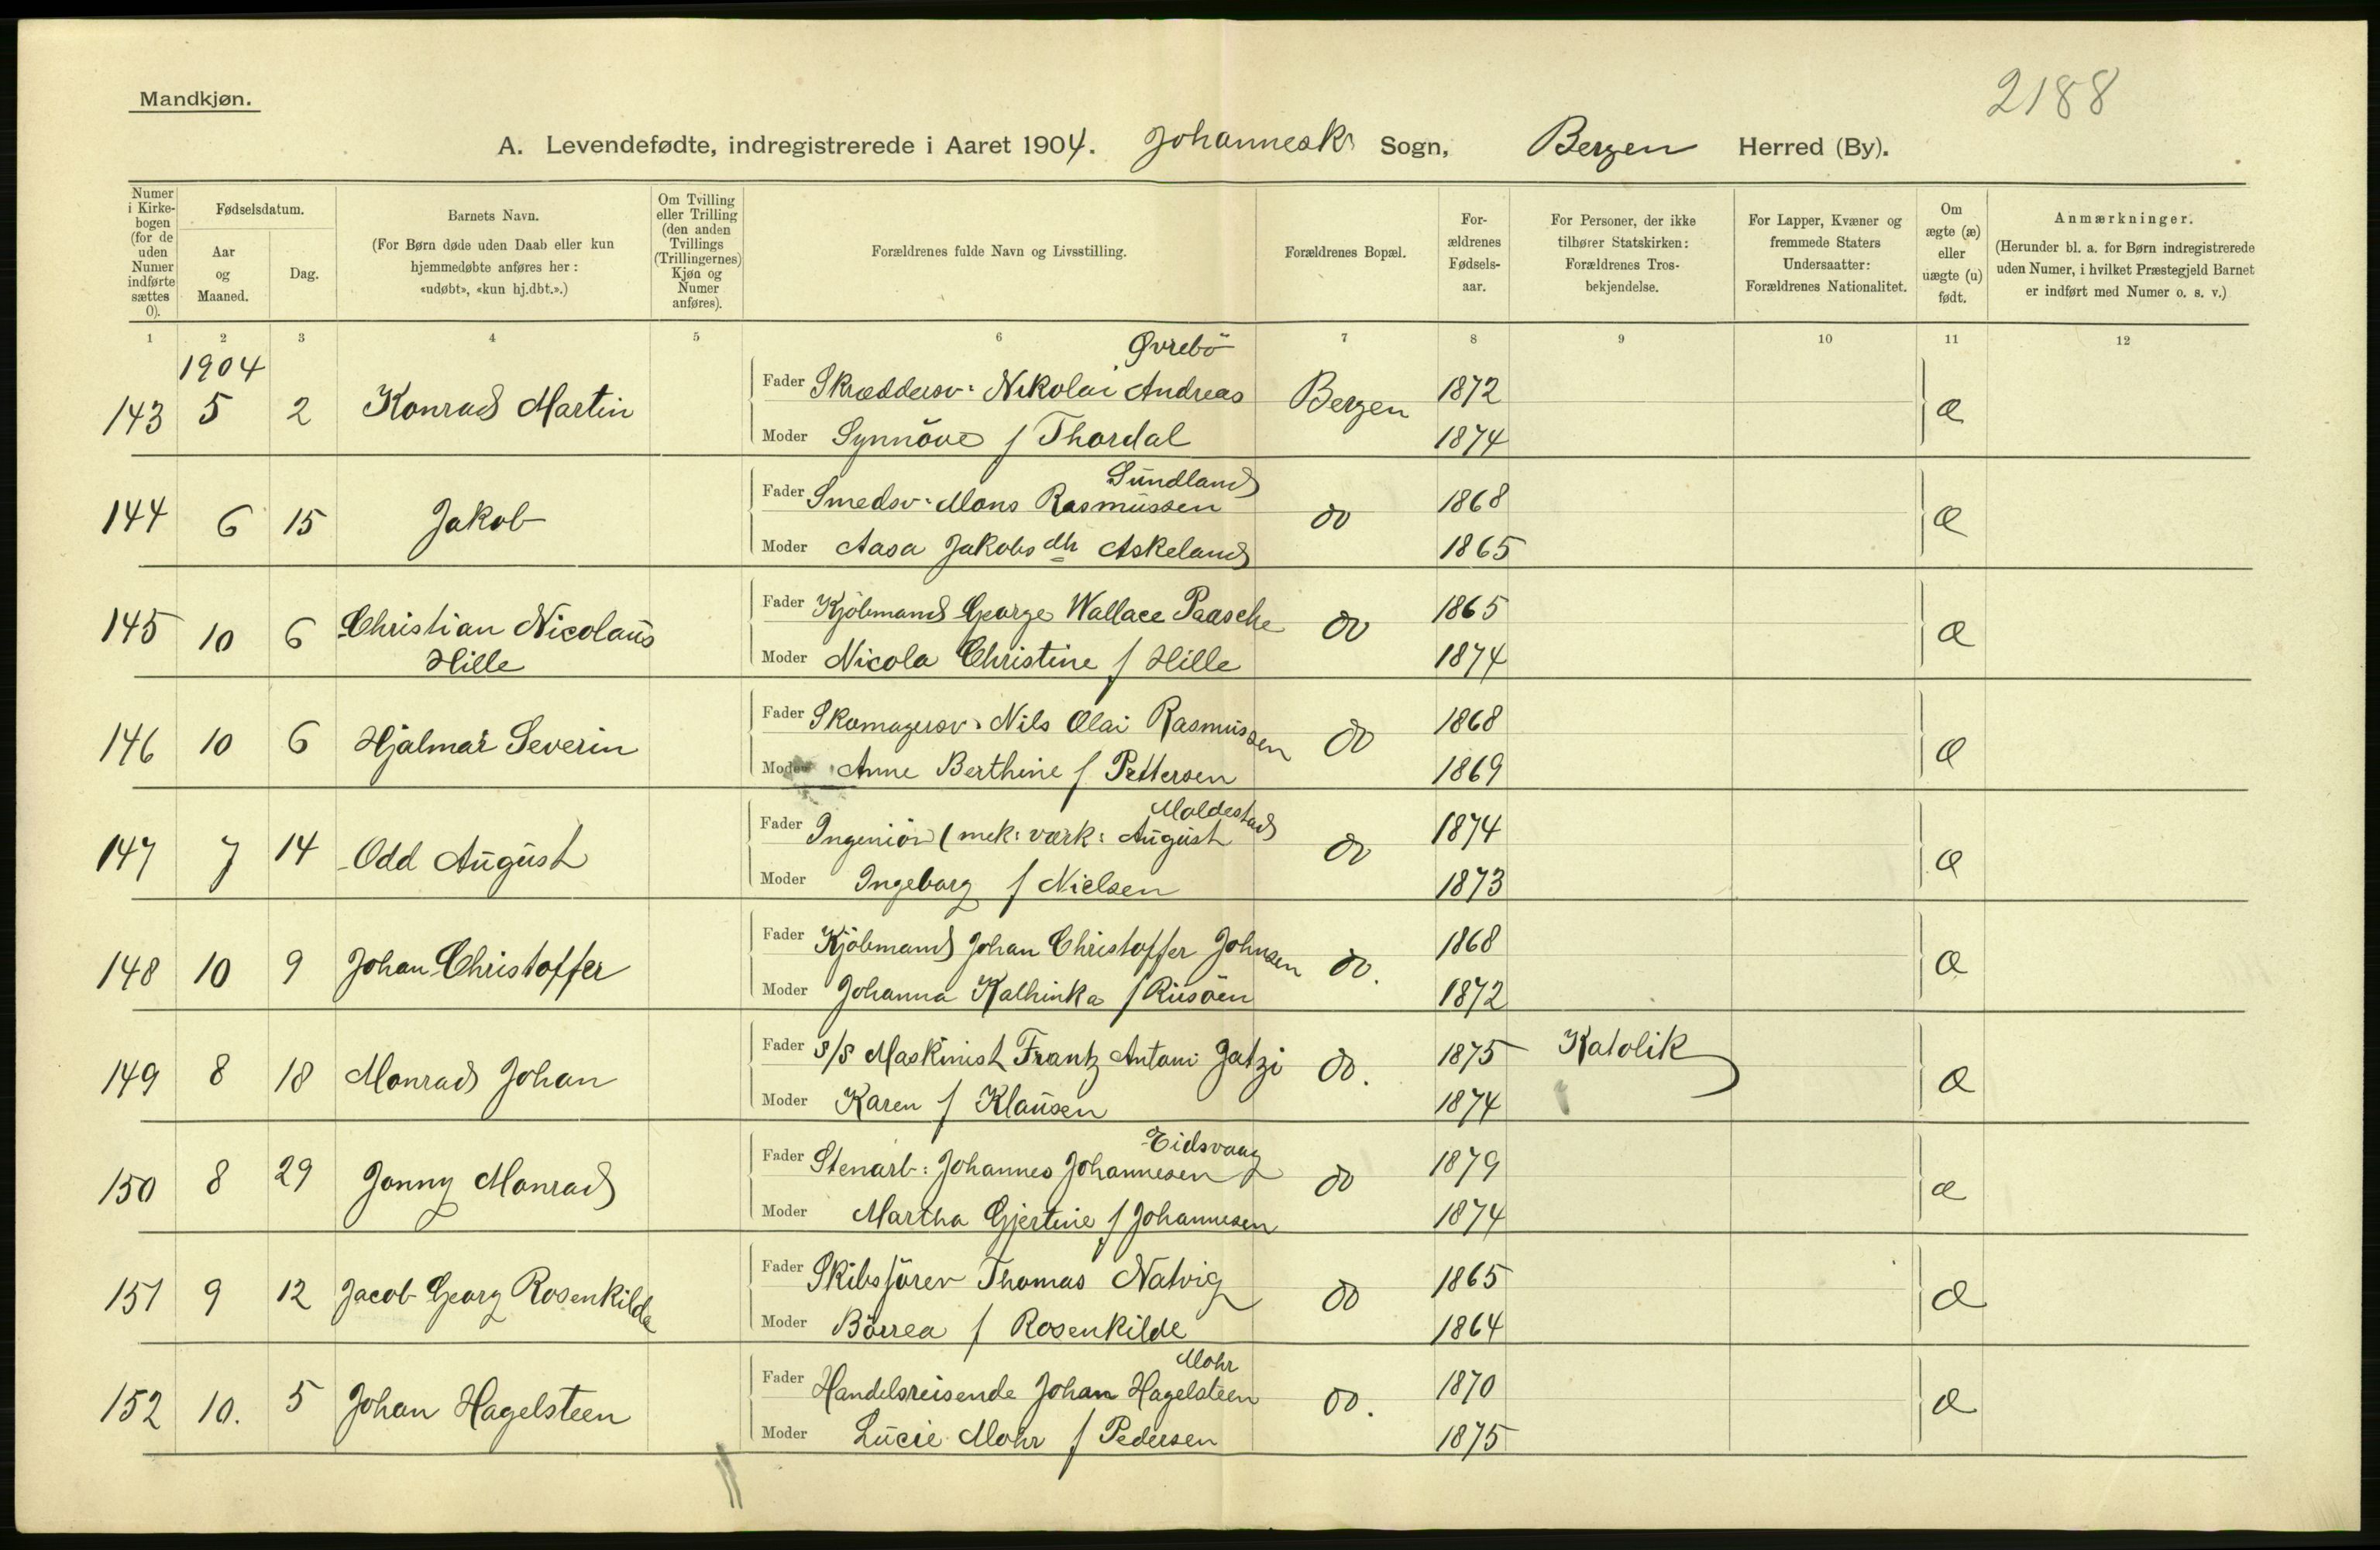 2188
Mandkjøn.
A. Levendefødte, indregistrerede i Aaret 1904. Johannesk: Sogn, Bergen Herred (By).
Numer i Kirkebogen (for de uden Numer indførte sættes 0).
Fødselsdatum.
Aar og Maaned.
Dag.
Barnets Navn.
(For Børn døde uden Daab eller kun hjemmedøbte anføres her: «udøbt», «kun hj.dbt.».)
Om Tvilling eller Trilling (den anden Tvillings (Trillingernes) Kjøn og Numer anføres).
Forældrenes fulde Navn og Livsstilling.
Forældrenes Bopæl.
For-ældrenes Fødsels-aar.
For Personer, der ikke tilhører Statskirken: Forældrenes Tros-bekjendelse.
For Lapper, Kvæner og fremmede Staters Undersaatter: Forældrenes Nationalitet.
Om ægte (æ) eller uægte (u) født.
Anmærkninger.
(Herunder bl. a. for Børn indregistrerede uden Numer, i hvilket Præstegjeld Barnet er indført med Numer o. s. v.)
1 2 3 4 5 6 7 8 9 10 11 12
1904
Øvrebö
143 5 2 Konrad Martin Fader Skræddersv: Nikolai Andreas Bergen 1872 æ
Moder Synnöve f Thordal 1874
Sundland
144 6 15 Jakob Fader Smedsv: Mons Rasmussen do 1868 æ
Moder Aasa Jakobsdtr Askeland 1865
145 10 6 Christian Nicolaus Fader Kjöbmand George Wallace Paasche do 1865 æ
Hille Moder Nicola Christine f Hille 1874
146 10 6 Hjalmar Severin Fader Skomagersv: Nils Olai Rasmussen do 1868 æ
Moder Anne Berthine f Pettersen 1869
Moldestad
147 7 14 Odd August Fader Ingeniör (mek: værk: August do 1874 æ
Moder Ingeborg f Nielsen 1873
148 10 9 Johan Christoffer Fader Kjöbmand Johan Christoffer Johnsen do. 1868 æ
Moder Johanna Kathinka f Riisöen 1872
149 8 18 Monrad Johan Fader S/S Maskinist Frantz Antoni Jatzi do. 1875 Katolik æ
Moder Karen f Klausen 1874
Eidsvaag
150 8 29 Jonny Monrad Fader Stenarb: Johannes Johannesen do 1879 æ
Moder Martha Gjertine f Johannesen 1874
151 9 12 Jacob Georg Rosenkilde Fader Skibsförer Thomas Natvig do 1865 æ
Moder Börrea f Rosenkilde 1864
Mohr
152 10. 5 Johan Hagelsteen Fader Handelsreisende Johan Hagelsteen do. 1870 æ
Moder Lucie Mohr f Pedersen 1875